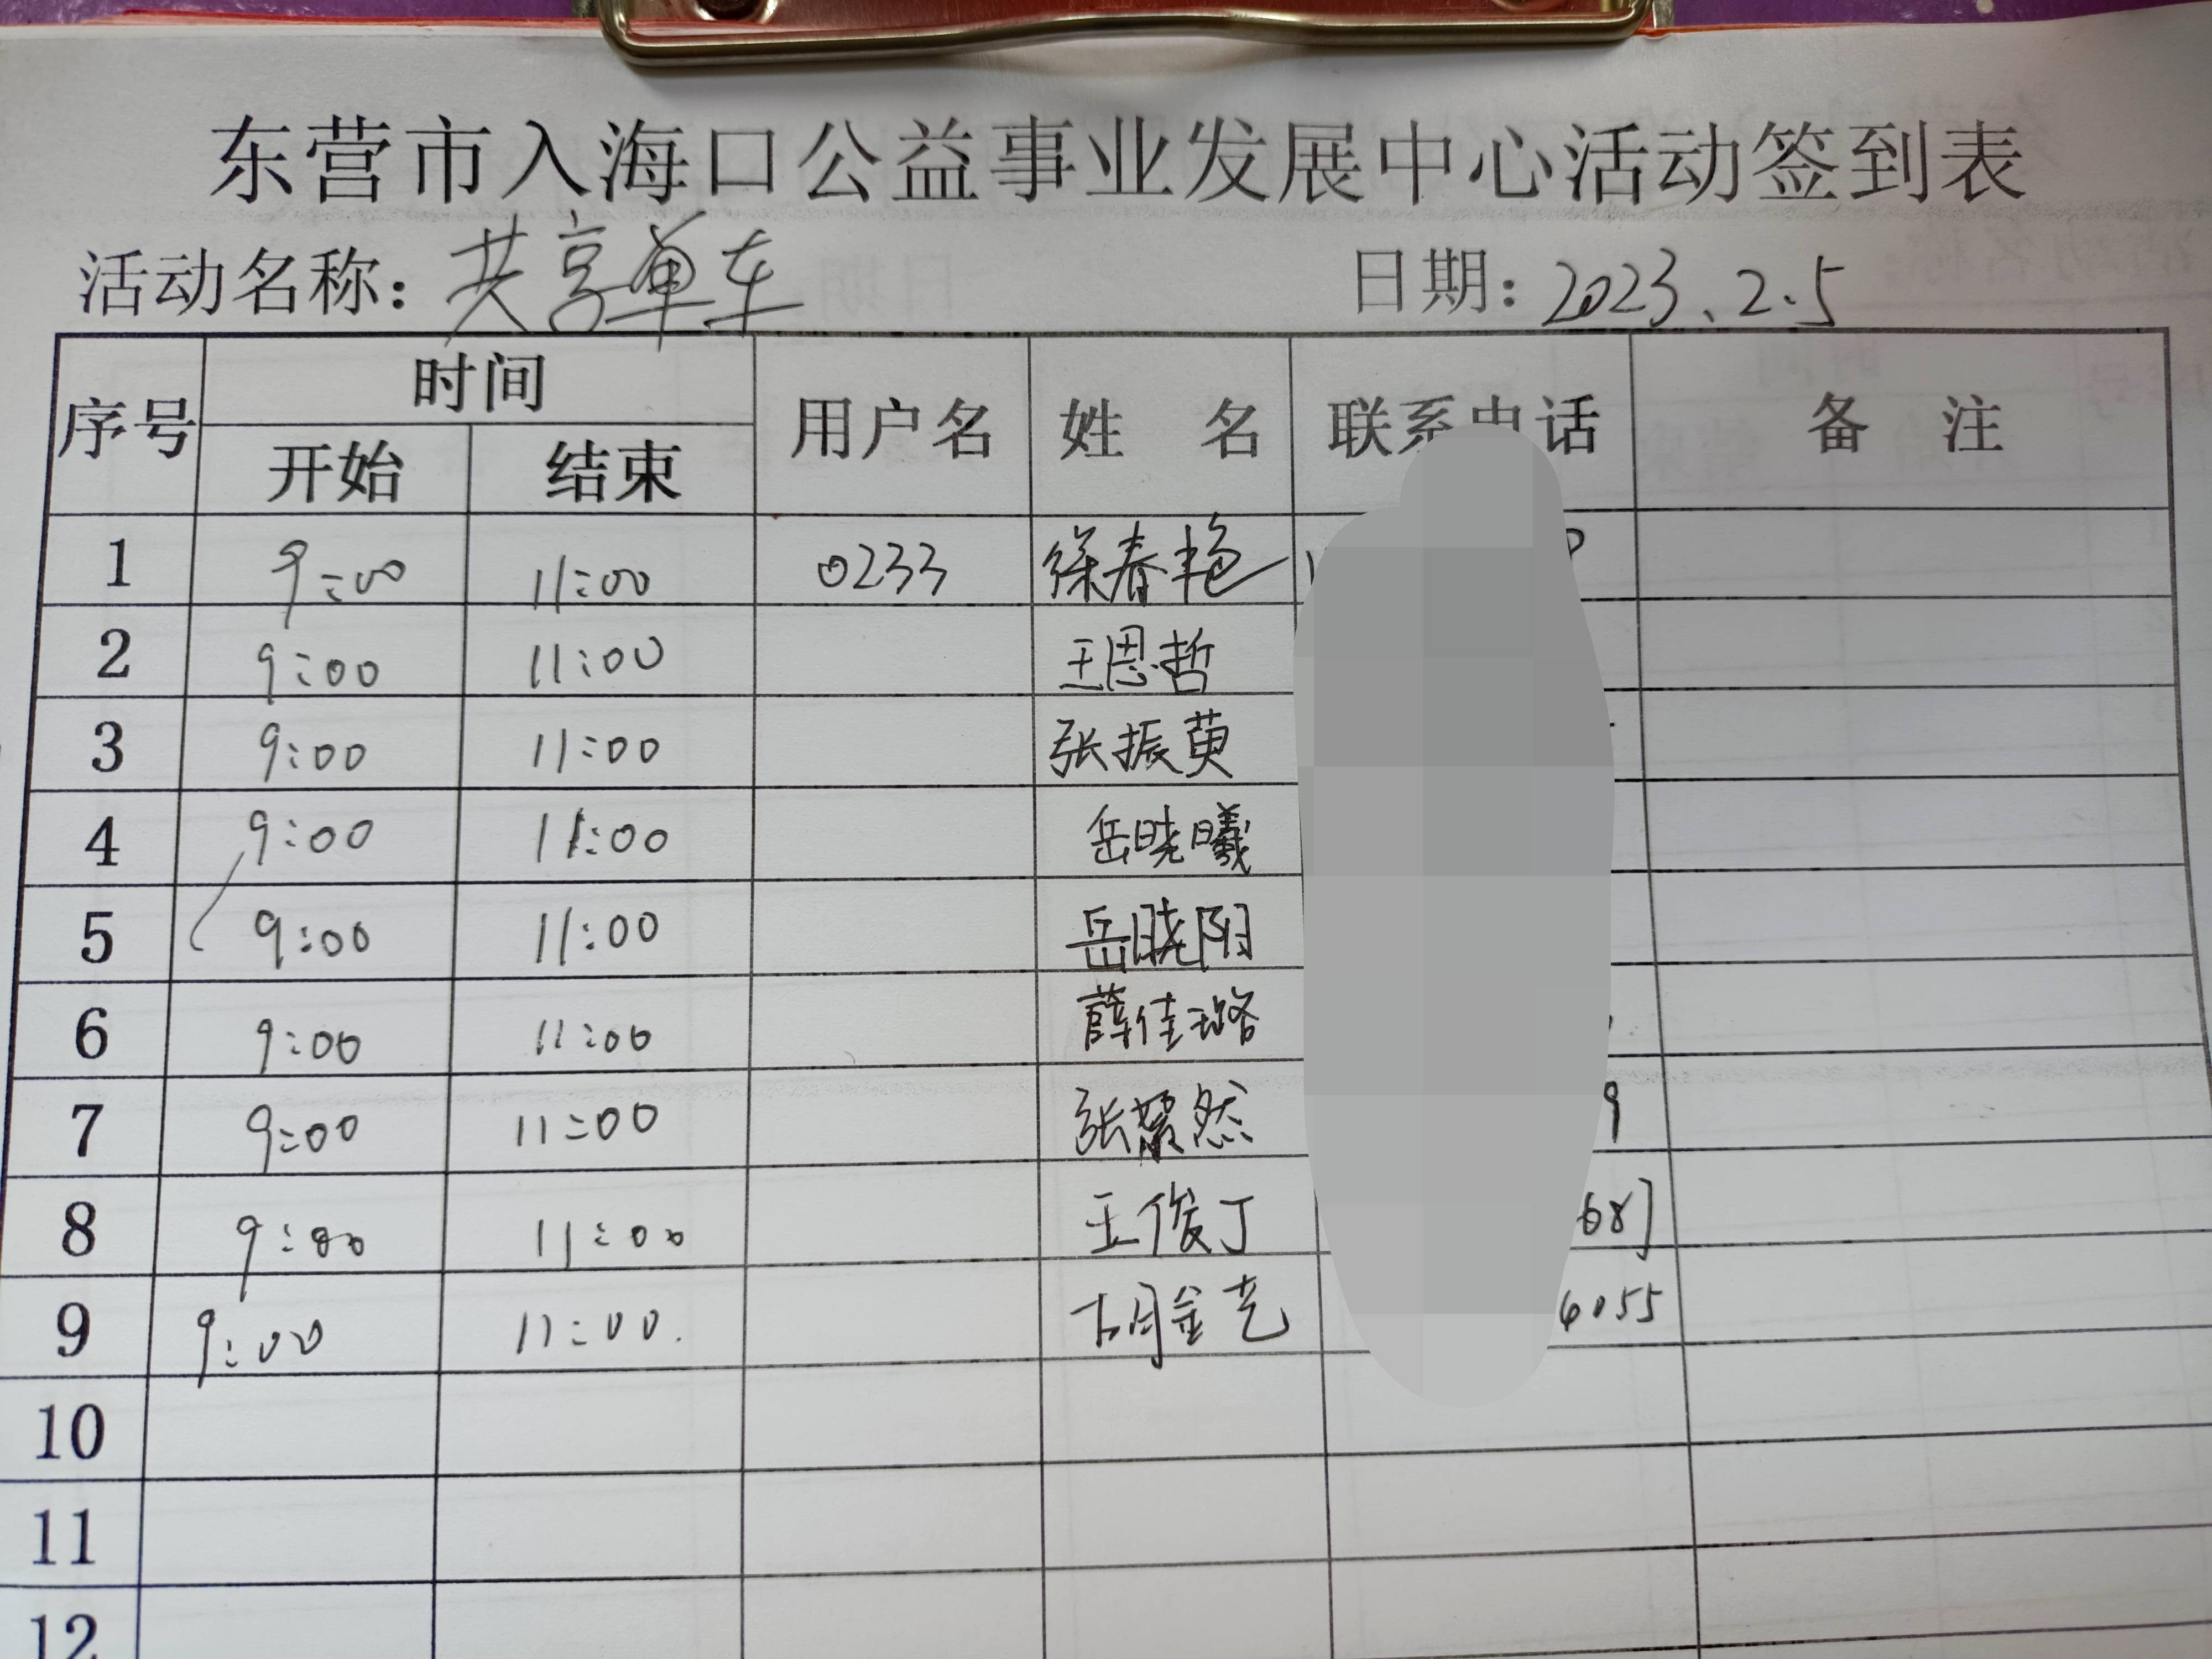 东营市入海口公益事业发展中心活动签到表
活动名称：共享单车 日期：2023.2.5
序号 时间 用户名 姓 名 联系电话 备 注
开始 结束
1 9:00 11:00 0233 徐春艳
2 9:00 11:00 王思哲
3 9:00 11:00 张振萸
4 9:00 11:00 岳晓曦
5 9:00 11:00 岳晓阳
6 9:00 11:00 薛佳璐
7 9:00 11:00 张馨然 9
8 9:00 11:00 王俊丁 68
9 9:00 11:00. 胡金艺 6055
10
11
12